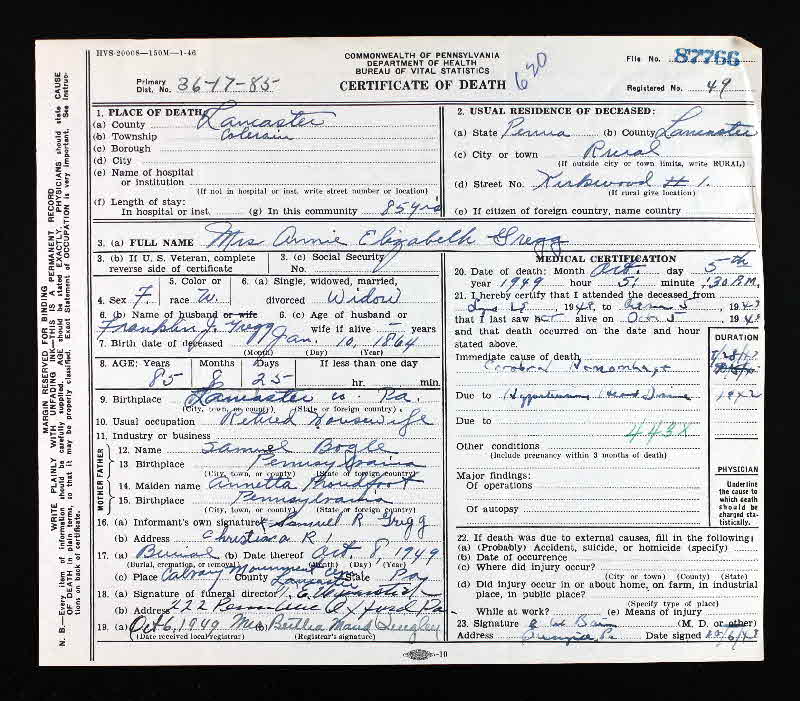 HVS-20008—150M—1-46
COMMONWEALTH OF PENNSYLVANIA
DEPARTMENT OF HEALTH
BUREAU OF VITAL STATISTICS
CERTIFICATE OF DEATH
620
File No. 87766
Primary Dist. No. 36-17-85
Registered No. 49
1. PLACE OF DEATH:
(a) County Lancaster
(b) Township Colerain
(c) Borough
(d) City
(e) Name of hospital or institution
(If not in hospital or inst. write street number or location)
(f) Length of stay:
In hospital or inst. (g) In this community 85 yrs
2. USUAL RESIDENCE OF DECEASED:
(a) State Penna (b) County Lancaster
(c) City or town Rural
(If outside city or town limits, write RURAL)
(d) Street No. Kirkwood # 1.
(If rural give location)
(e) If citizen of foreign country, name country
3. (a) FULL NAME Mrs Annie Elizabeth Gregg
3. (b) If U. S. Veteran, complete reverse side of certificate
3. (c) Social Security No.
4. Sex F.
5. Color or race W.
6. (a) Single, widowed, married, divorced Widow
6. (b) Name of husband or wife
Franklin J. Gregg
6. (c) Age of husband or wife if alive – years
7. Birth date of deceased Jan. 10, 1864
(Month) (Day) (Year)
8. AGE: Years Months Days If less than one day
85 8 25 hr. min.
9. Birthplace Lancaster Co. Pa.
(City, town, or county) (State or foreign country)
10. Usual occupation Retired Housewife
11. Industry or business
FATHER
12. Name Samuel Bogle
13. Birthplace Pennsylvania
(City, town, or county) (State or foreign country)
MOTHER
14. Maiden name Annetta Proudfoot
15. Birthplace Pennsylvania
(City, town, or county) (State or foreign country)
16. (a) Informant's own signature Samuel R Gregg
(b) Address Christiana R 1
17. (a) Burial (b) Date thereof Oct. 8, 1949
(Burial, cremation, or removal) (Month) (Day) (Year)
(c) Place Calvary Monument
County Lancaster State Pa
18. (a) Signature of funeral director
(b) Address 222 Penn Ave Oxford Pa.
19. (a) Oct 6, 1949 (b) Mrs Bertha Maud
(Date received local registrar) (Registrar's signature)
MEDICAL CERTIFICATION
20. Date of death: Month Oct. day 5th
year 1949 hour 5 minute :30 P.M.
21. I hereby certify that I attended the deceased from
that I last saw her alive on Oct 5
and that death occurred on the date and hour stated above.
DURATION
Immediate cause of death
Cerebral Hemorrhage
Due to
Due to
443X
Other conditions
(Include pregnancy within 3 months of death)
Major findings:
Of operations
Of autopsy
PHYSICIAN
Underline the cause to which death should be charged statistically.
22. If death was due to external causes, fill in the following:
(a) (Probably) Accident, suicide, or homicide (specify)
(b) Date of occurrence
(c) Where did injury occur?
(City or town) (County) (State)
(d) Did injury occur in or about home, on farm, in industrial place, in public place?
(Specify type of place)
While at work? (e) Means of injury
23. Signature (M. D. or other)
Address Date signed
MARGIN RESERVED FOR BINDING
WRITE PLAINLY WITH UNFADING INK—THIS IS A PERMANENT RECORD
N. B.—Every item of information should be carefully supplied. AGE should be stated EXACTLY. PHYSICIANS should state CAUSE OF DEATH in plain terms, so that it may be properly classified. Exact Statement of OCCUPATION is very important. See instructions on back of certificate.
—10